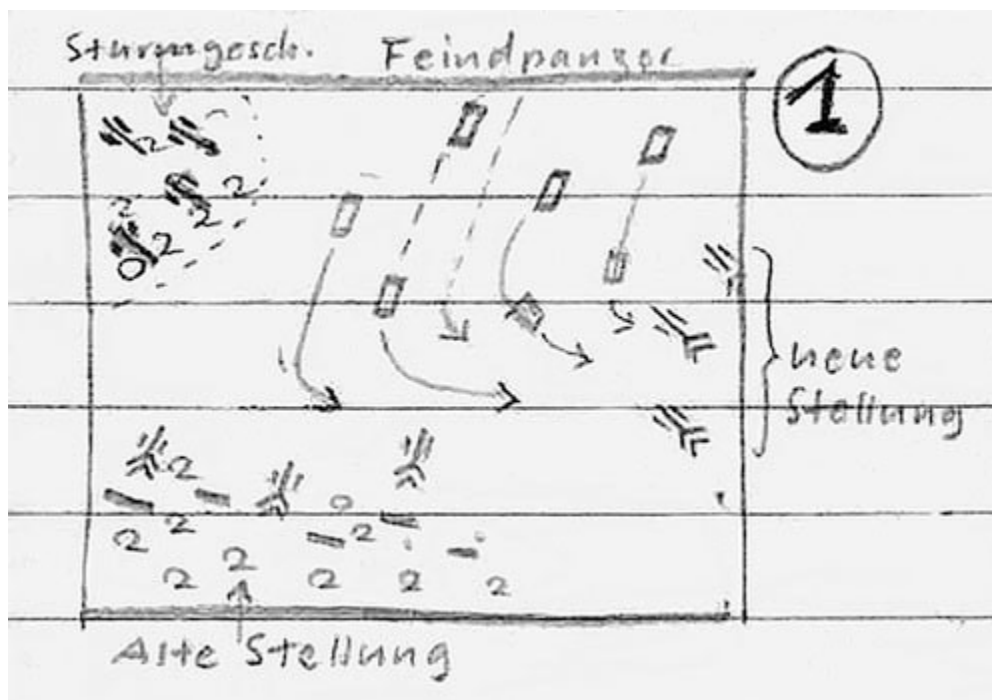 Sturmgesch.
Feindpanzer
1
neue
Stellung
Alte Stellung